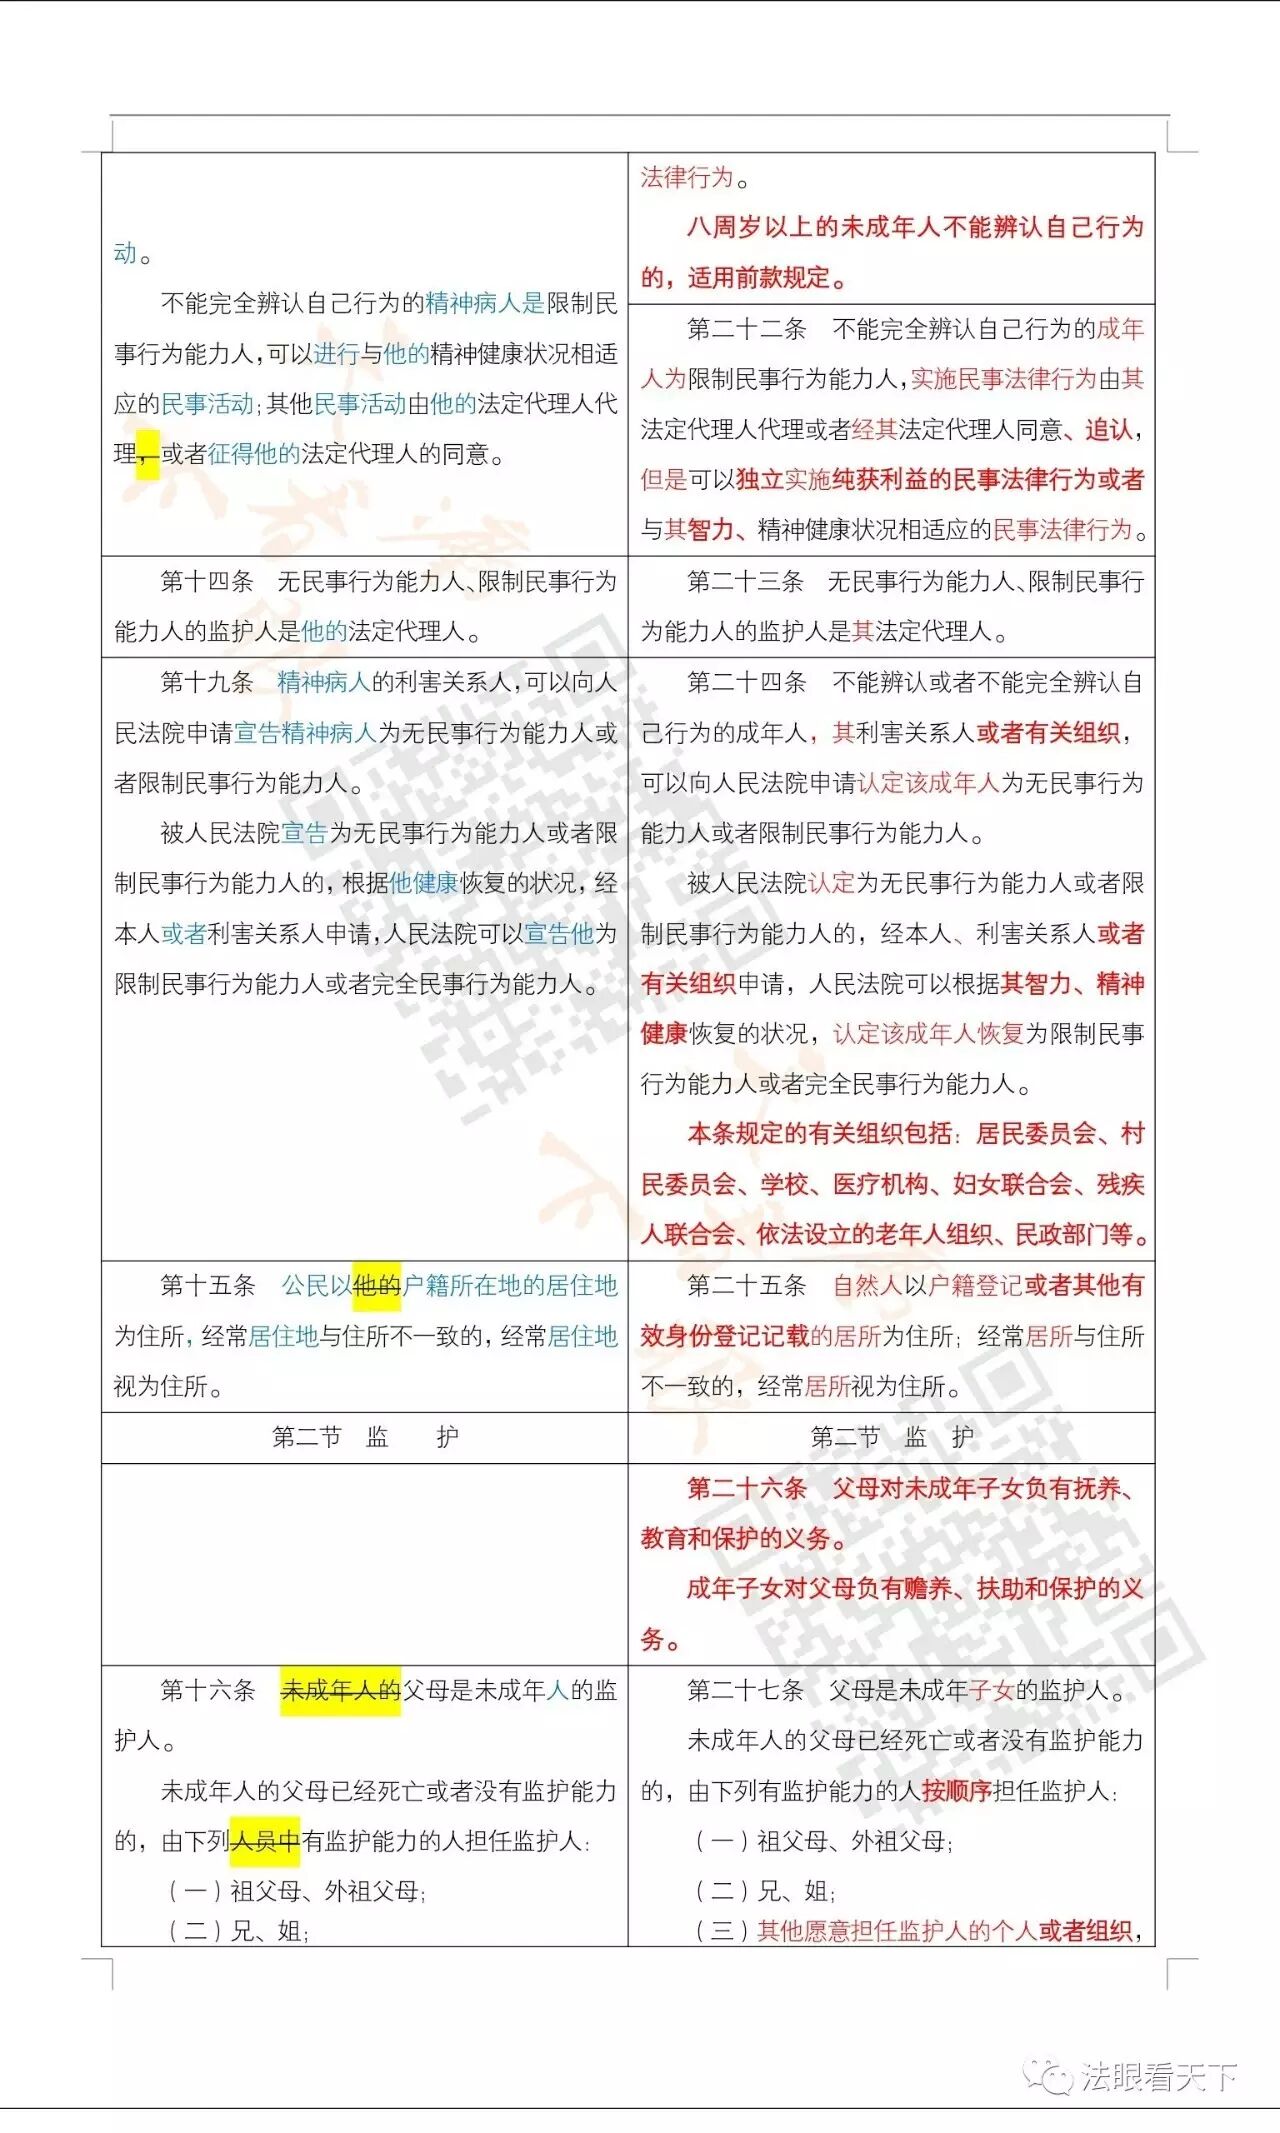 动。
不能完全辨认自己行为的精神病人是限制民
事行为能力人，可以进行与他的精神健康状况相适
应的民事活动；其他民事活动由他的法定代理人代
理，或者征得他的法定代理人的同意。
法律行为。
八周岁以上的未成年人不能辨认自己行为
的，适用前款规定。
第二十二条　不能完全辨认自己行为的成年
人为限制民事行为能力人，实施民事法律行为由其
法定代理人代理或者经其法定代理人同意、追认，
但是可以独立实施纯获利益的民事法律行为或者
与其智力、精神健康状况相适应的民事法律行为。
第十四条　无民事行为能力人、限制民事行为
能力人的监护人是他的法定代理人。
第二十三条　无民事行为能力人、限制民事行
为能力人的监护人是其法定代理人。
第十九条　精神病人的利害关系人，可以向人
民法院申请宣告精神病人为无民事行为能力人或
者限制民事行为能力人。
被人民法院宣告为无民事行为能力人或者限
制民事行为能力人的，根据他健康恢复的状况，经
本人或者利害关系人申请，人民法院可以宣告他为
限制民事行为能力人或者完全民事行为能力人。
第二十四条　不能辨认或者不能完全辨认自
己行为的成年人，其利害关系人或者有关组织，
可以向人民法院申请认定该成年人为无民事行为
能力人或者限制民事行为能力人。
被人民法院认定为无民事行为能力人或者限
制民事行为能力人的，经本人、利害关系人或者
有关组织申请，人民法院可以根据其智力、精神
健康恢复的状况，认定该成年人恢复为限制民事
行为能力人或者完全民事行为能力人。
本条规定的有关组织包括：居民委员会、村
民委员会、学校、医疗机构、妇女联合会、残疾
人联合会、依法设立的老年人组织、民政部门等。
第十五条　公民以他的户籍所在地的居住地
为住所，经常居住地与住所不一致的，经常居住地
视为住所。
第二十五条　自然人以户籍登记或者其他有
效身份登记记载的居所为住所；经常居所与住所
不一致的，经常居所视为住所。
第二节　监　　护
第二节　监　护
第二十六条　父母对未成年子女负有抚养、
教育和保护的义务。
成年子女对父母负有赡养、扶助和保护的义
务。
第十六条　未成年人的父母是未成年人的监
护人。
未成年人的父母已经死亡或者没有监护能力
的，由下列人员中有监护能力的人担任监护人：
（一）祖父母、外祖父母；
（二）兄、姐；
第二十七条　父母是未成年子女的监护人。
未成年人的父母已经死亡或者没有监护能力
的，由下列有监护能力的人按顺序担任监护人：
（一）祖父母、外祖父母；
（二）兄、姐；
（三）其他愿意担任监护人的个人或者组织，
法眼看天下